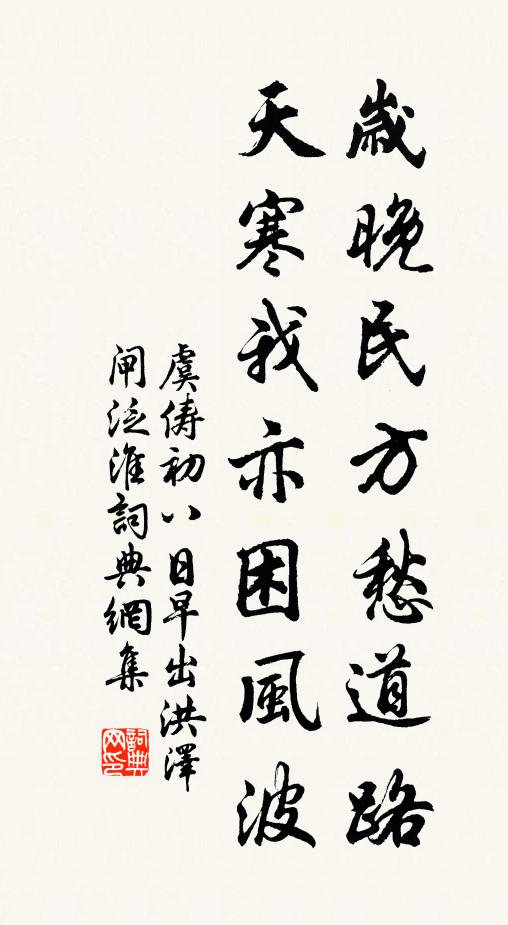 歲晚民方愁道路
天寒我亦困風波
虞俦初八日早出洪澤
闸泛淮詞典網集
詞典
网印